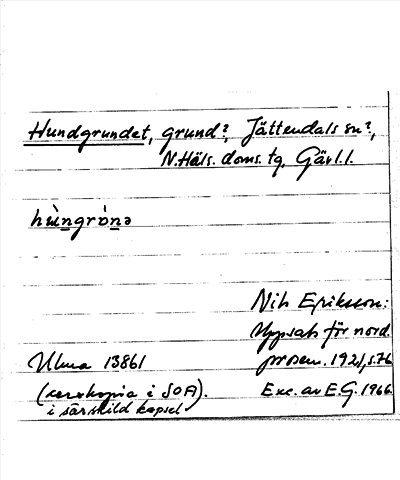 Hundgrundet, grund?, Jättendals sn?,
N.Häls. doms. tg, Gävl.l.
hùngrònə
Nils Eriksson:
Uppsats för nord.
prosem. 1921, s.76
Ulma 13861
(xeroxkopia i SOA).
Exc. av E.G. 1966.
i särskild kapsel